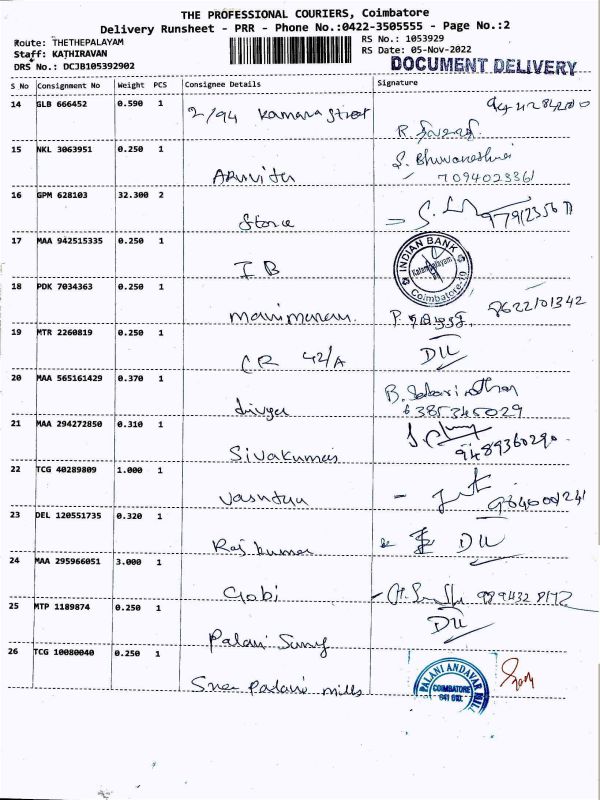 THE PROFESSIONAL COURIERS, Coimbatore
Delivery Runsheet - PRR - Phone No.:0422-3505555 - Page No.:2
Route: THETHEPALAYAM
RS No.: 1053929
Staff: KATHIRAVAN
RS Date: 05-Nov-2022
DRS No.: DCJB105392902
DOCUMENT DELIVERY
S No Consignment No Weight PCS Consignee Details Signature
14 GLB 666452 0.590 1 2/94 Kamaraj Street
15 NKL 3063951 0.250 1 S. Bhuvaneshwari
7094023361
16 GPM 628103 32.300 2 Store
17 MAA 942515335 0.250 1 IB
INDIAN BANK
Coimbatore
18 PDK 7034363 0.250 1 Manimaran. 9622101342
19 MTR 2260819 0.250 1 CR 42/A DIL
20 MAA 565161429 0.370 1 Divya
6385345029
21 MAA 294272850 0.310 1 Sivakumar 9489360290
22 TCG 40289809 1.000 1
23 DEL 120551735 0.320 1 Raj kumar DIL
24 MAA 295966051 3.000 1 Gobi
25 MTP 1189874 0.250 1 Palani DIL
26 TCG 10080040 0.250 1 Sree Palani mills
PALANI ANDAVAR MILL
COIMBATORE